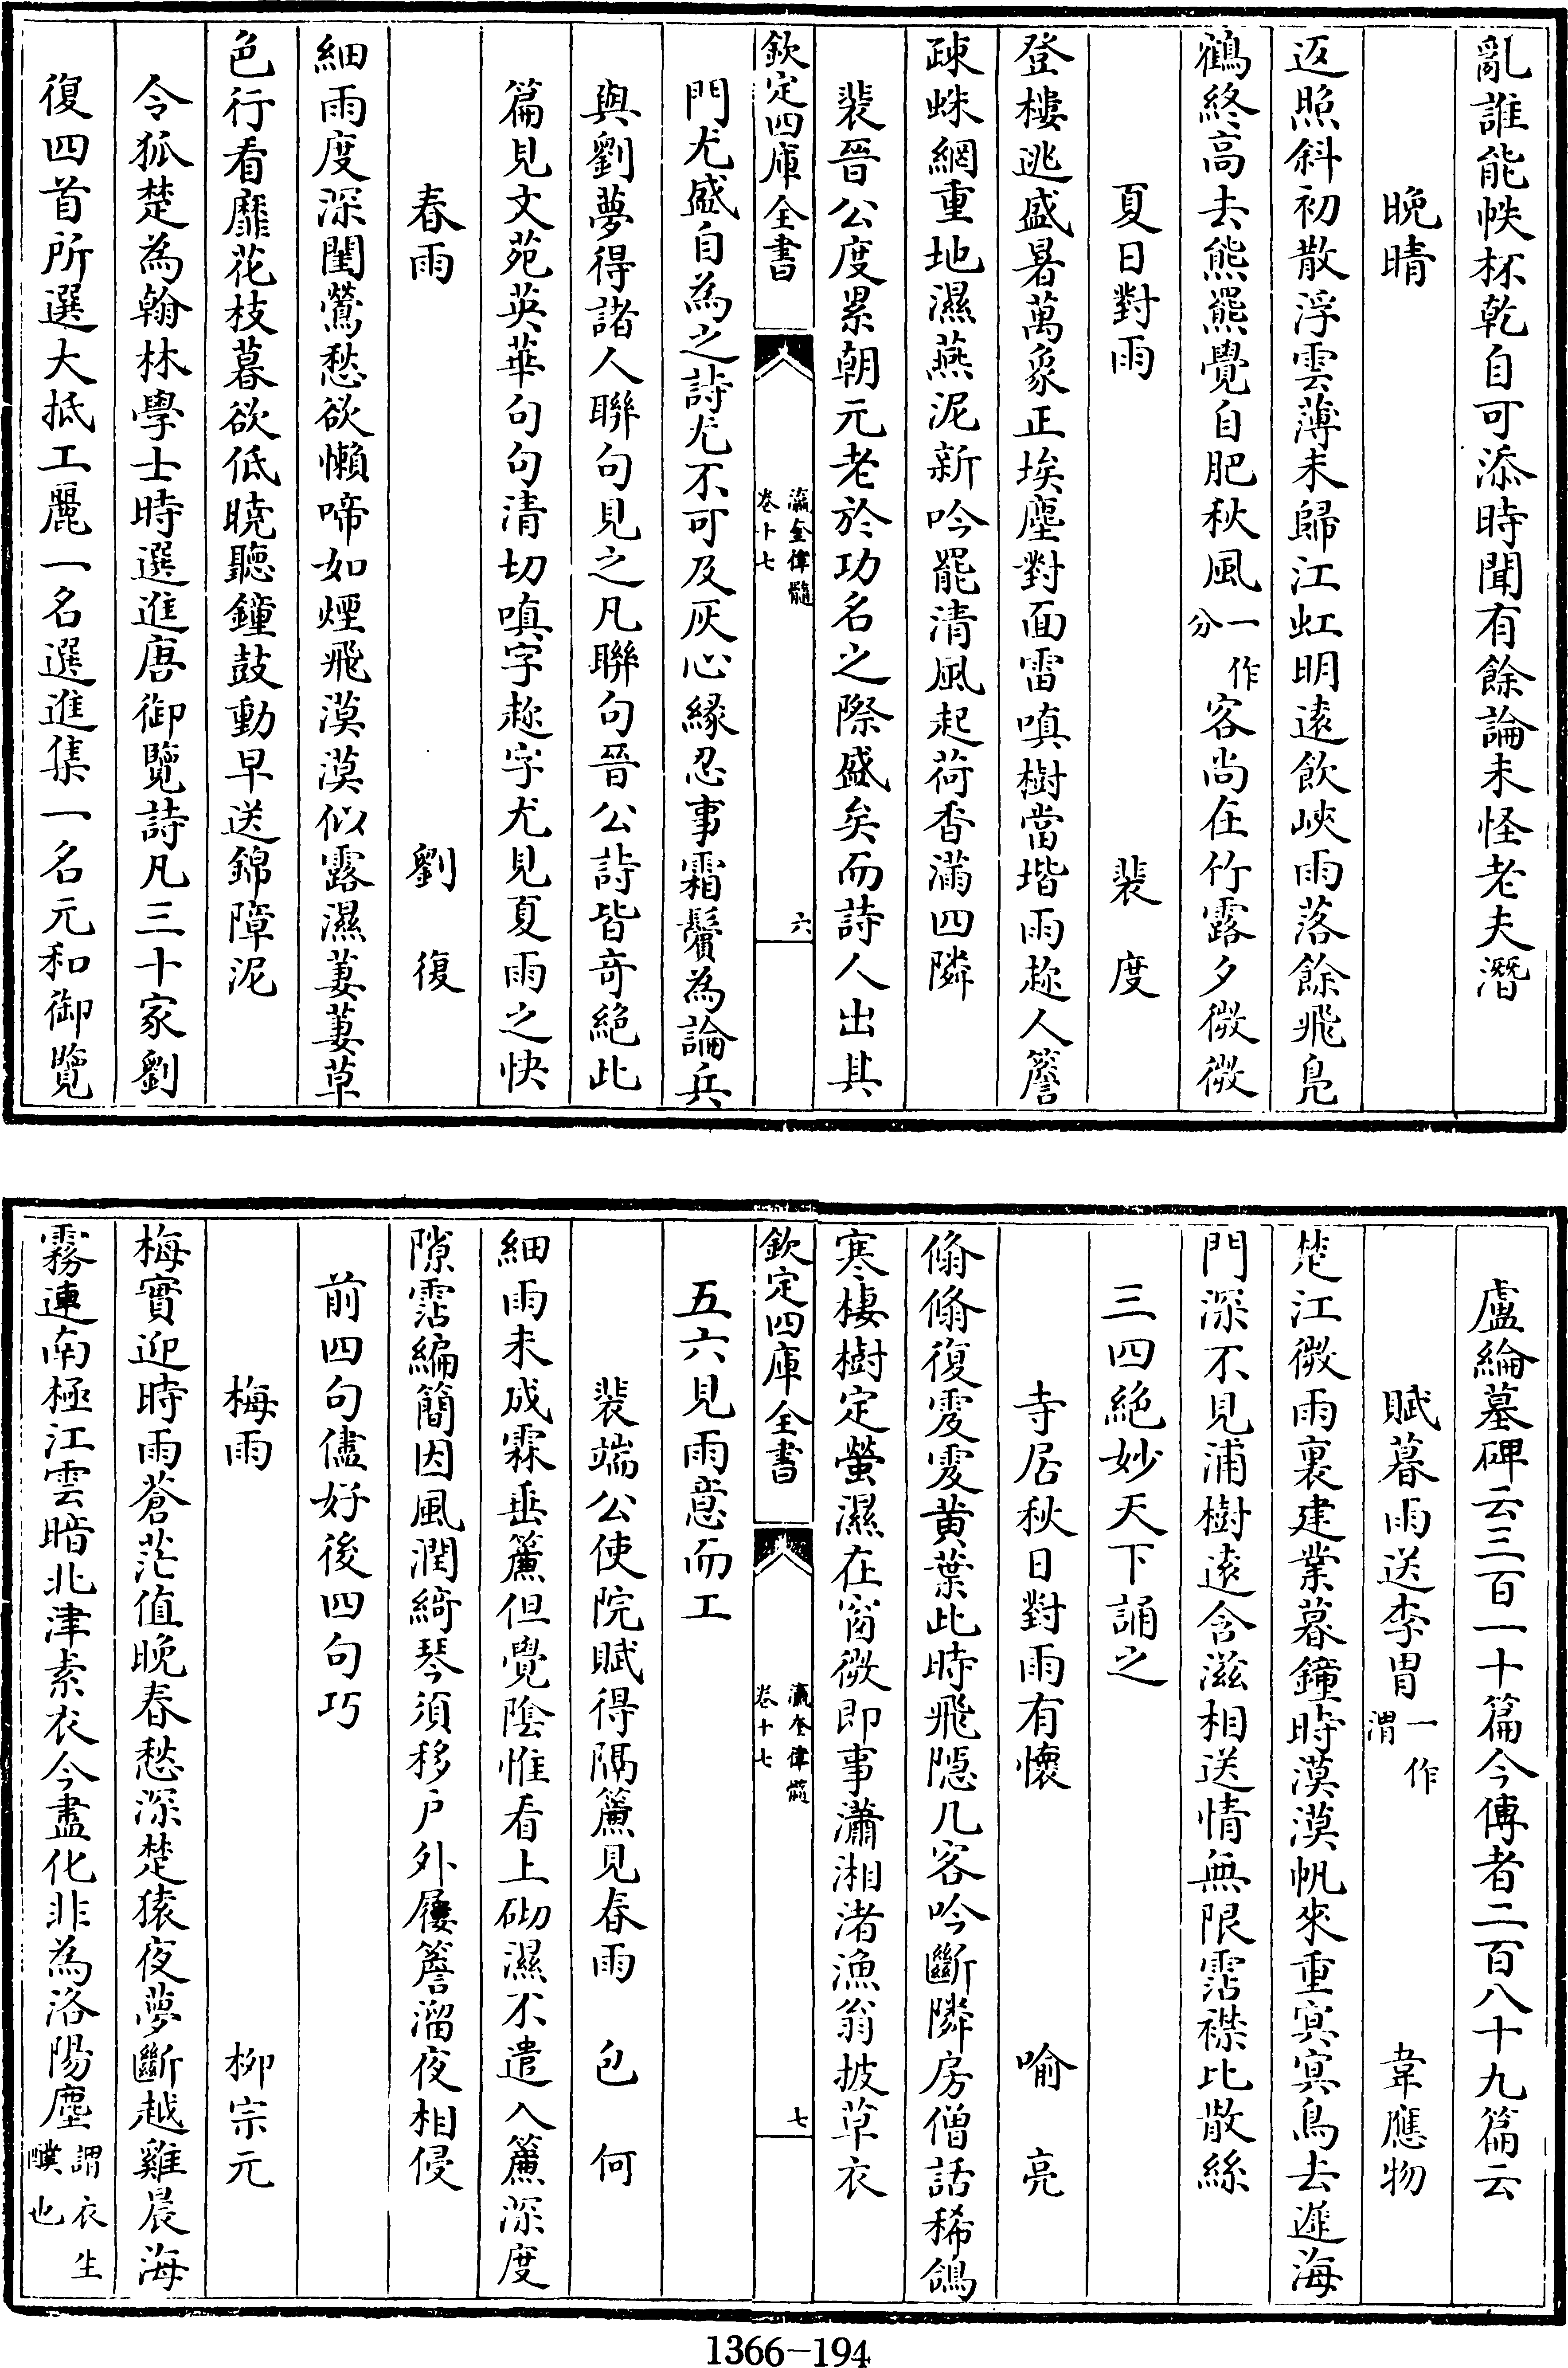 亂誰能帙杯乾自可添時聞有餘論未怪老夫潛
晚晴
返照斜初散浮雲薄未歸江虹明遠飲峽雨落餘飛鳧
鶴終高去熊羆覺自肥秋風一作分客尚在竹露夕微微
夏日對雨 裴度
登樓逃盛暑萬象正埃塵對面雷嗔樹當堦雨趂人簷
疎蛛網重地濕燕泥新吟罷清風起荷香滿四隣
裴晉公度累朝元老於功名之際盛矣而詩人出其
欽定四庫全書 瀛奎律髓 卷十七 六
門尤盛自為之詩尤不可及灰心緣忍事霜鬢為論兵
與劉夢得諸人聯句見之凡聯句晉公詩皆竒絶此
篇見文苑英華句句清切嗔字趂字尤見夏雨之快
春雨 劉復
細雨度深閨鶯愁欲懶啼如煙飛漠漠似露濕萋萋草
色行看靡花枝暮欲低曉聽鐘鼓動早送錦障泥
令狐楚為翰林學士時選進唐御覽詩凡三十家劉
復四首所選大抵工麗一名選進集一名元和御覽
盧綸墓碑云三百一十篇今傳者二百八十九篇云
賦暮雨送李胄一作渭 韋應物
楚江微雨裏建業暮鐘時漠漠帆來重冥冥鳥去遲海
門深不見浦樹逺含滋相送情無限霑襟比散絲
三四絶妙天下誦之
寺居秋日對雨有懷 喻亮
翛翛復雯雯黄葉此時飛隠几客吟斷隣房僧話稀鴿
寒棲樹定螢濕在窗微即事瀟湘渚漁翁披草衣
欽定四庫全書 瀛奎律髓 卷十七 七
五六見雨意而工
裴端公使院賦得隔簾見春雨 包何
細雨未成霖垂簾但覺陰惟看上砌濕不遣入簾深度
隙霑編簡因風潤綺琴須移户外屨簷溜夜相侵
前四句儘好後四句巧
梅雨 柳宗元
梅實迎時雨蒼茫值晚春愁深楚猿夜夢斷越雞晨海
霧連南極江雲暗北津素衣今盡化非為洛陽塵謂衣生醭也
1366-194